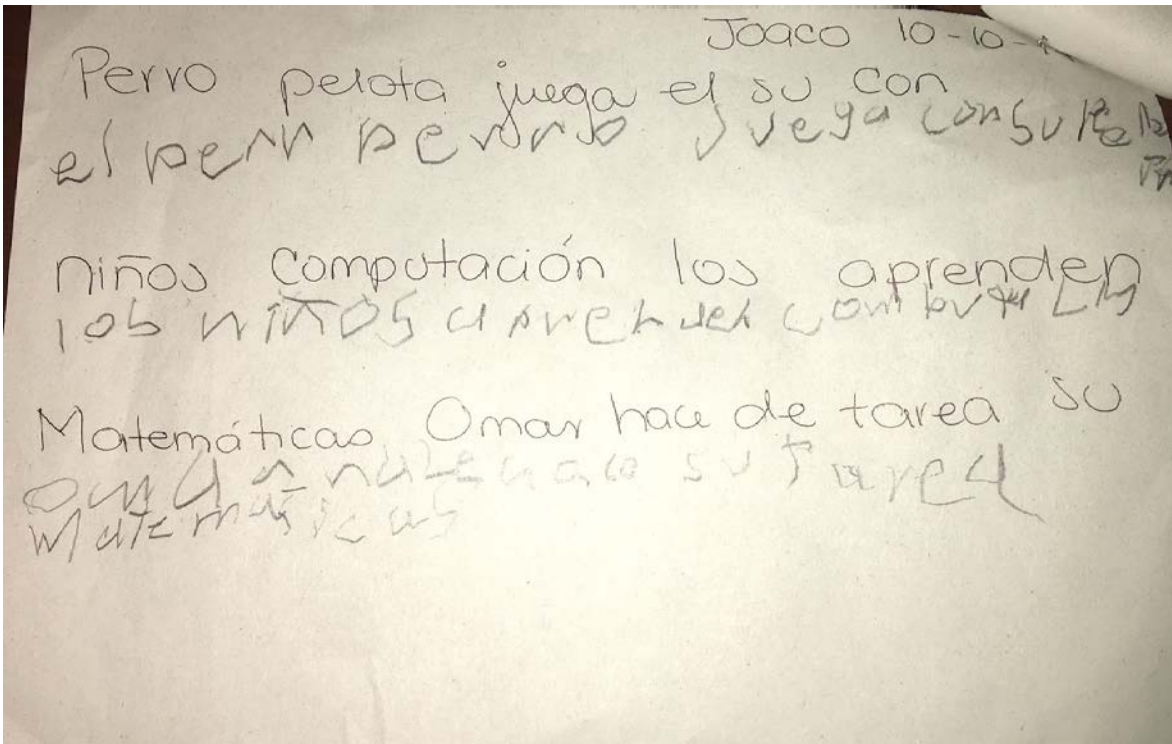 Joaco 10-10-
Perro pelota juega el su con
el perr perrro juega con su
niños computación los aprenden
los niños aprenden
Matemáticas Omar hace de tarea su
su tarea
matematicas